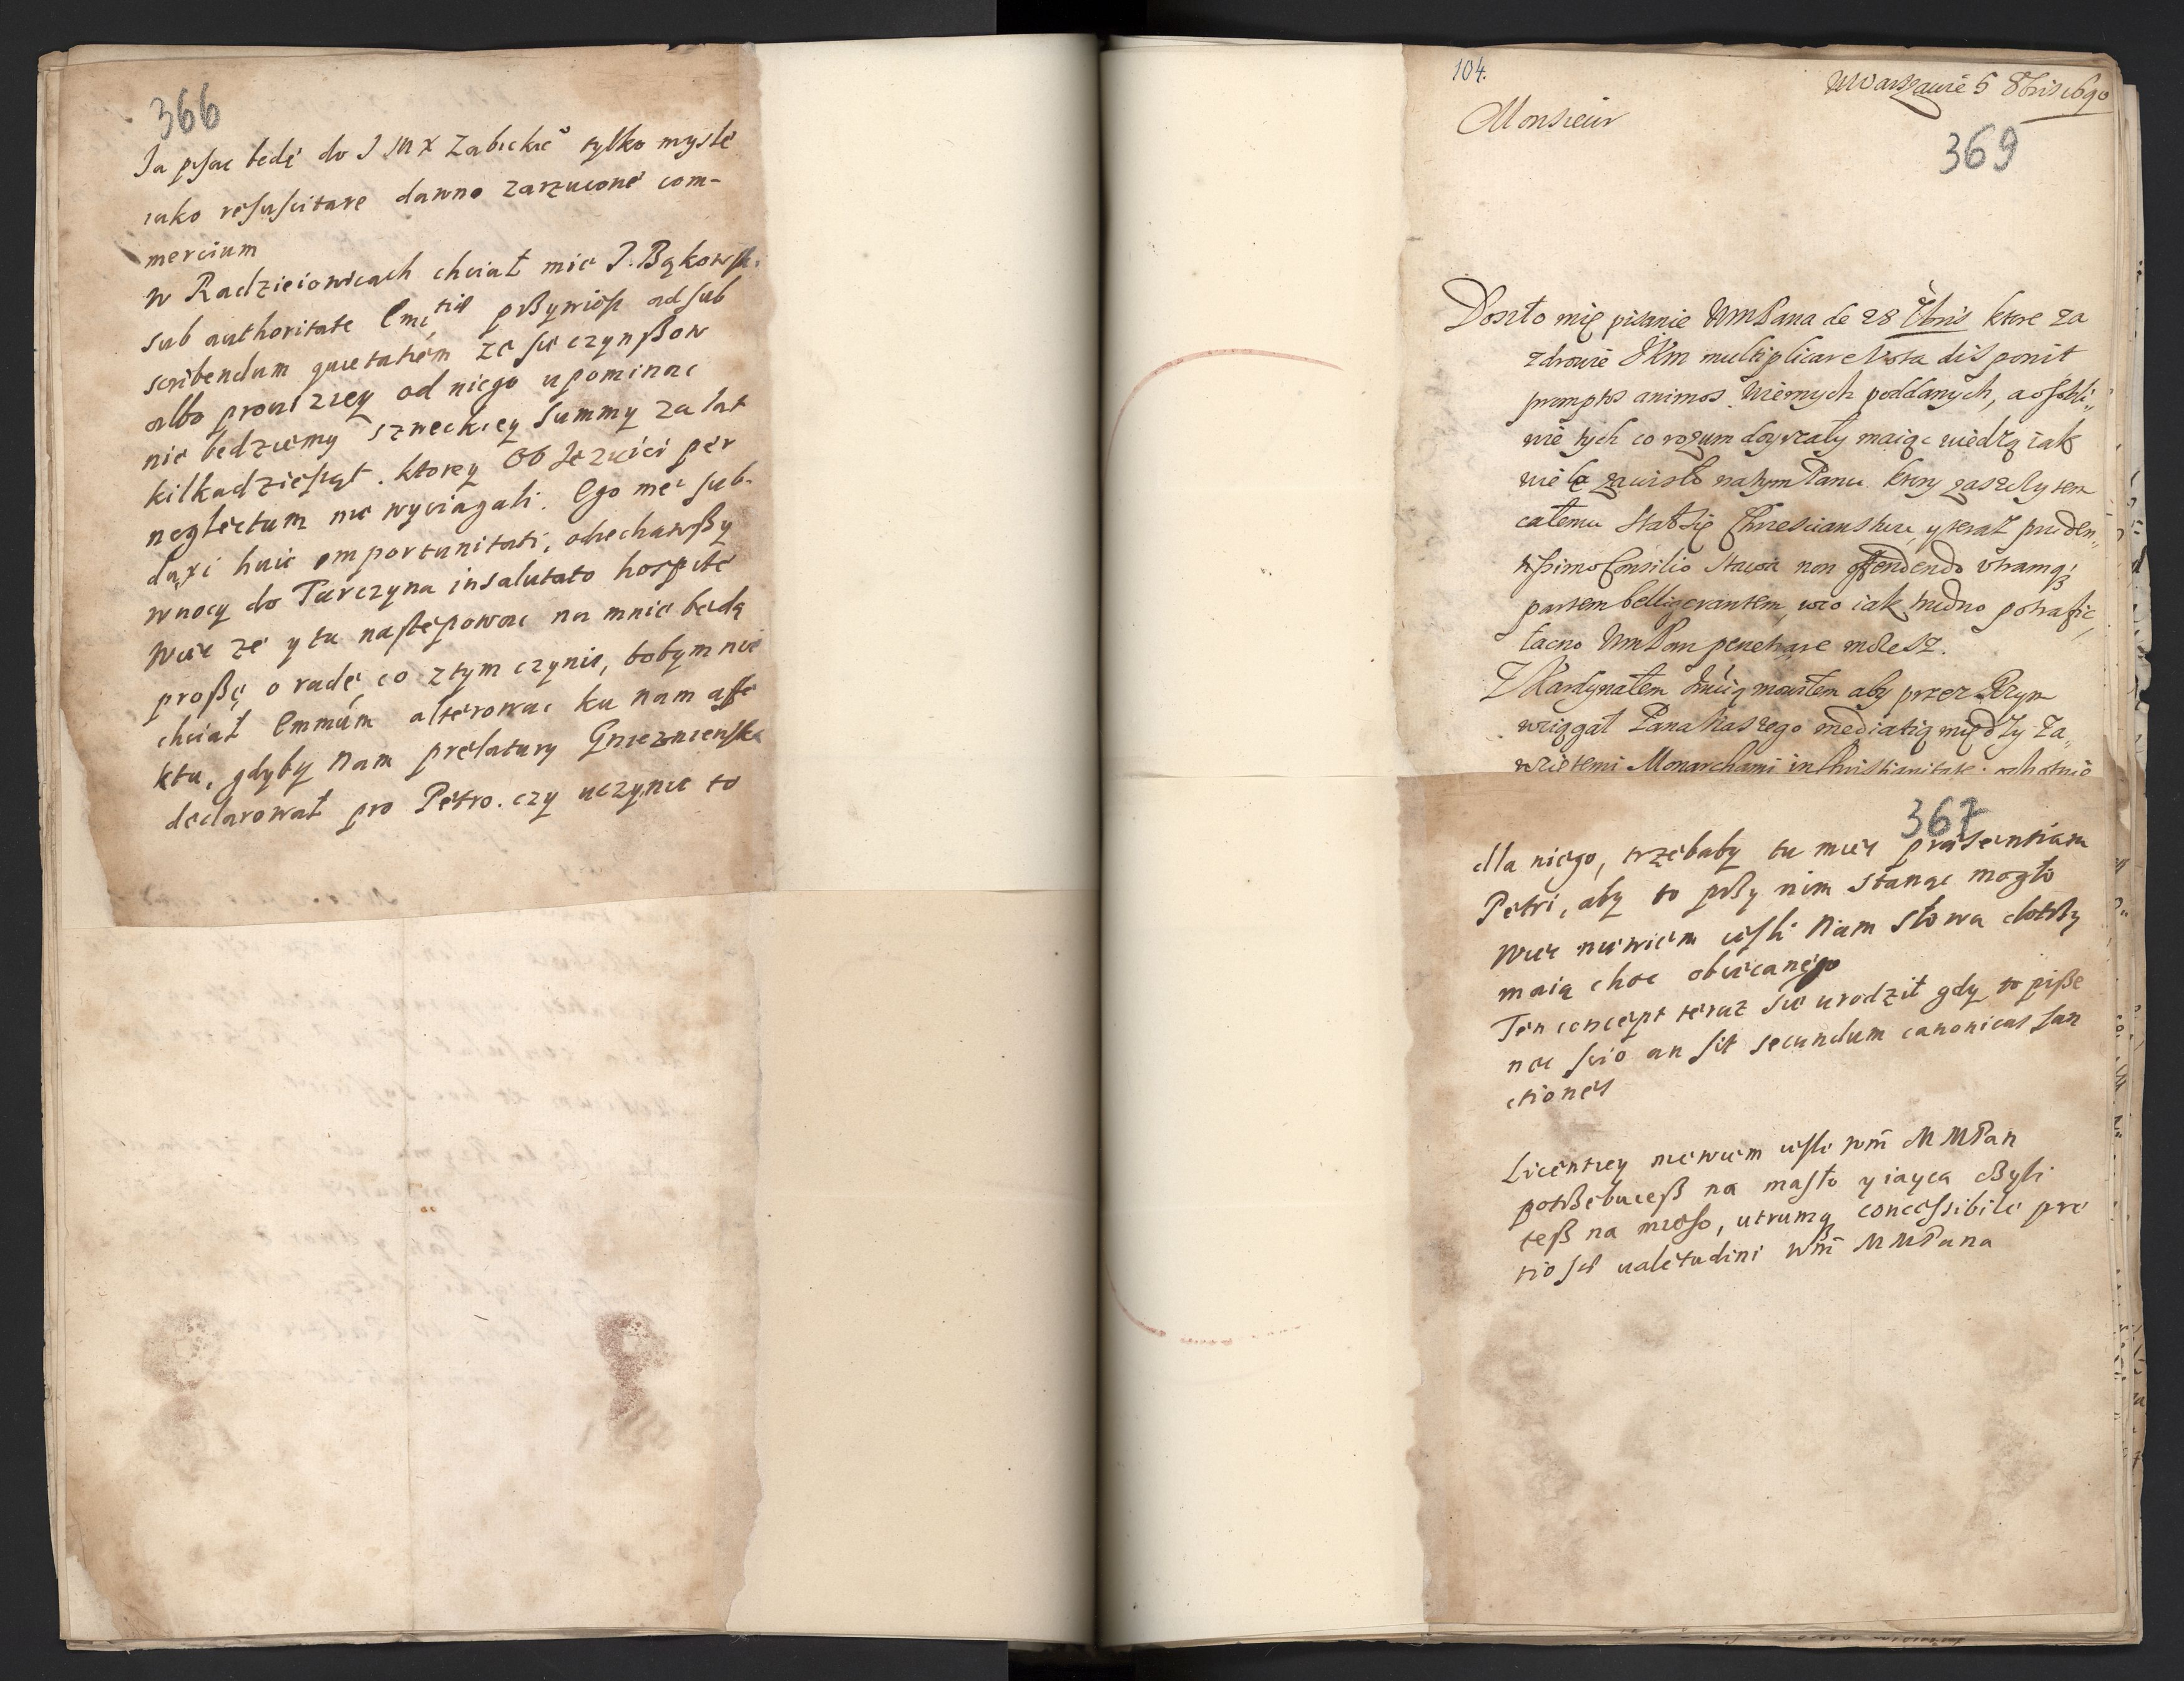 366
Ja pisac bedę do J M X Zabickie° tylko mysle
iako resuscitare dawno zarzucone com-
mercium
w Radzieiowicach chciał mie J. Bąkowsk.
sub authoritate Emi tis przywiesc ad sub
scribendum quietatiem ze sie czynszow
albo prowizyey od niego upominac
nie bedziemy szweckiey summy za lat
kilkadziesiąt. ktorey OO Jezuici per
neglectum nie wyciagali. Ego me sub-
duxi huic importunitati, odiechawszy
w nocy do Tarczyna insalutato hospite
Wiec ze y tu nastepowac na mnie bedą
proszę o radę, co z tym czynic, bobym nie
chciał Emmum alterowac ku nam affe
ktu, gdyby nam prelatury Gnieznienska
declarował pro Petro. czy uczynic to
104.
W Warszawie 5 8bris 1690
Monsieur
369
Doszło mię pisanie WmPana de 28 7bris ktore za
zdrowie JKm multiplicare Vota disponit
promptos animos wiernych poddanych, a osobli„
wie tych co rozum doyrzały maiąc wiedzą iak
wiele zawisło na tym Panu ktory zaszczytem
całemu stał się Chrzescianstwu, y teraz pruden„
tissimo Consilio stawa non offendendo utramq;
partem belligerantem, w co iak trudno potrafic,
łacno WmPan penetrare mozesz.
Z Kardynałem mowiłem aby przez Rzym
wciągał Pana Naszego mediatią między za„
wziętemi Monarchami in Christianitate. ochotnie
367
dla niego, trzebaby tu miec praesentiam
Petri, aby to przy nim stanąc mogło
Wiec nie wiem iesli Nam słowa dotrzy
maią choc obiecanego
Ten concept teraz sie urodził gdy to pisze
nec scio an sit secundum canonicas san
ctiones
Licentiey nie wiem iesli Wm MMPan
potrzebuiesz na masło y iayca czyli
tesz na mieso, utrumq concessibile pre
tiosae valetudini Wm MMPana